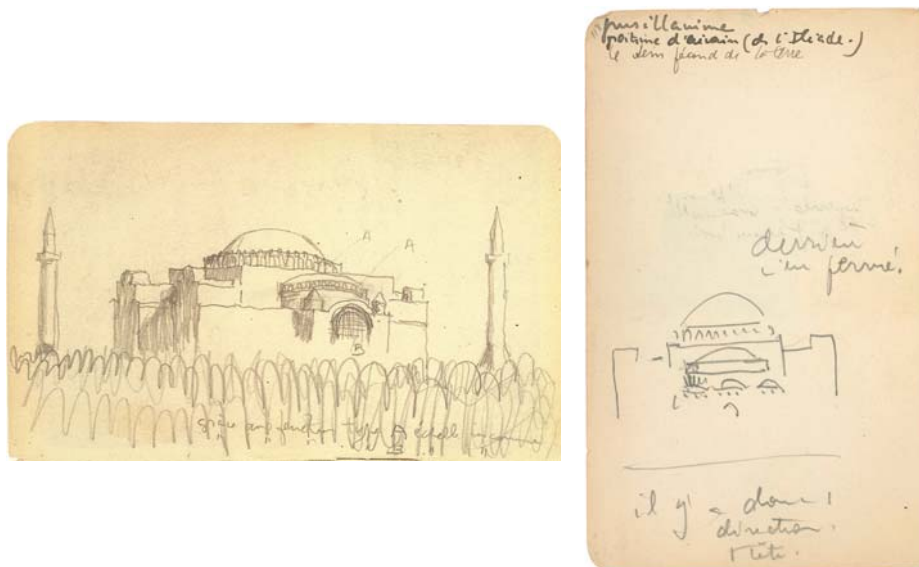 A A
B
grâce aux fenêtres type A échelle
" " " B "
pusillanime
poitrine d'airain (de l'Iliade.)
le sein fécond de la terre
derrière
c'est fermé.
il y a donc 1
direction.
1 tête.